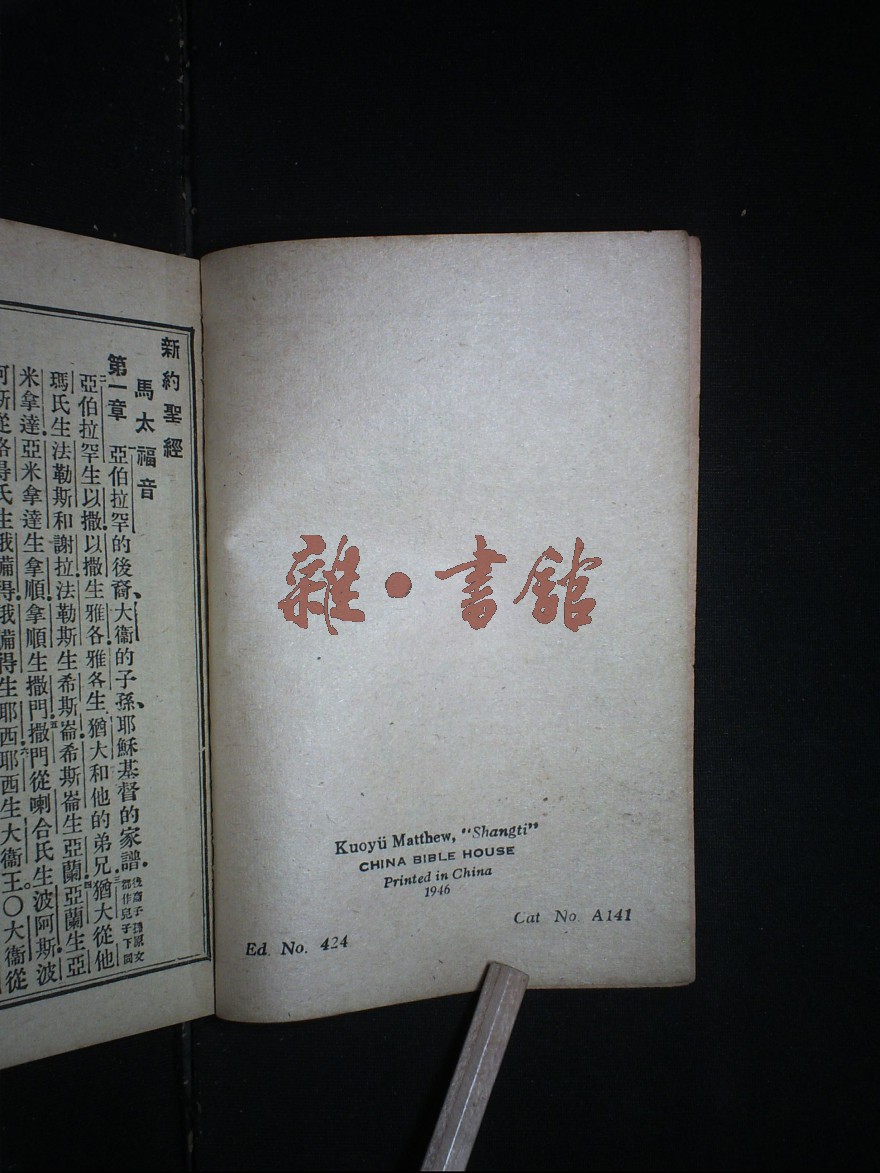 新約聖經
馬太福音
第一章 一亞伯拉罕的後裔、大衛的子孫、耶穌基督的家譜．後裔子孫原文都作兒子下同
二亞伯拉罕生以撒．以撒生雅各．雅各生猶大和他的弟兄．三猶大從他
瑪氏生法勒斯和謝拉．法勒斯生希斯崙．希斯崙生亞蘭．四亞蘭生亞
米拿達．亞米拿達生拿順．拿順生撒門．五撒門從喇合氏生波阿斯．波
阿斯從路得氏生俄備得．俄備得生耶西．六耶西生大衛王。〇大衛從
雜·書館
Kuoyü Matthew, "Shangti"
CHINA BIBLE HOUSE
Printed in China
1946
Cat No. A141
Ed. No. 424